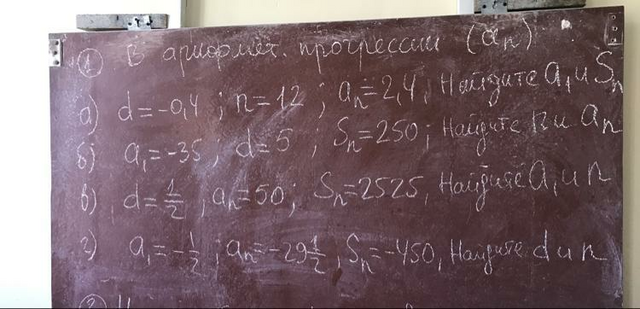 ① В арифмет. прогрессии (aₙ)
а) d=-0,4; n=12; aₙ=2,4, Найдите a₁ и Sₙ
б) a₁=-35, d=5; Sₙ=250; Найдите n и aₙ
в) d=1/2, aₙ=50; Sₙ=2525, Найдите a₁ и n
г) a₁=-1/2; aₙ=-29 1/2, Sₙ=-450, Найдите d и n
②